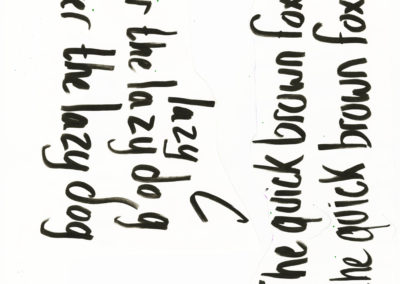 The quick brown fox
the quick brown fox
lazy
r the lazy dog
er the lazy dog